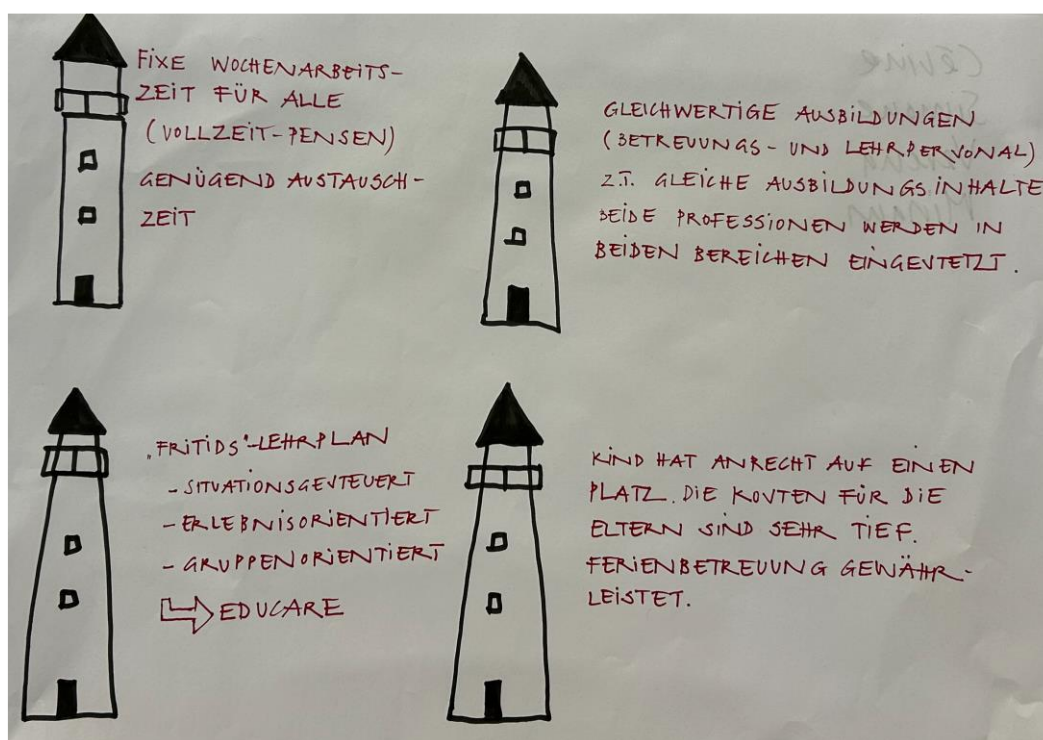 FIXE WOCHENARBEITS-
ZEIT FÜR ALLE
(VOLLZEIT-PENSEN)
GENÜGEND AUSTAUSCH-
ZEIT
GLEICHWERTIGE AUSBILDUNGEN
(BETREUUNGS- UND LEHRPERSONAL)
Z.T. GLEICHE AUSBILDUNGSINHALTE
BEIDE PROFESSIONEN WERDEN IN
BEIDEN BEREICHEN EINGESTETZT.
„FRITIDS"-LEHRPLAN
- SITUATIONSGESTEUERT
- ERLEBNISORIENTIERT
- GRUPPENORIENTIERT
EDUCARE
KIND HAT ANRECHT AUF EINEN
PLATZ. DIE KOSTEN FÜR DIE
ELTERN SIND SEHR TIEF.
FERIENBETREUUNG GEWÄHR-
LEISTET.